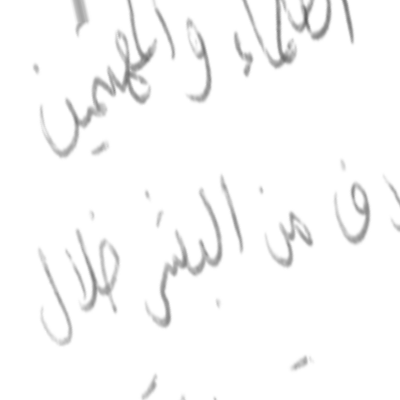 العلماء والمهتمين
ف من البشر خلال